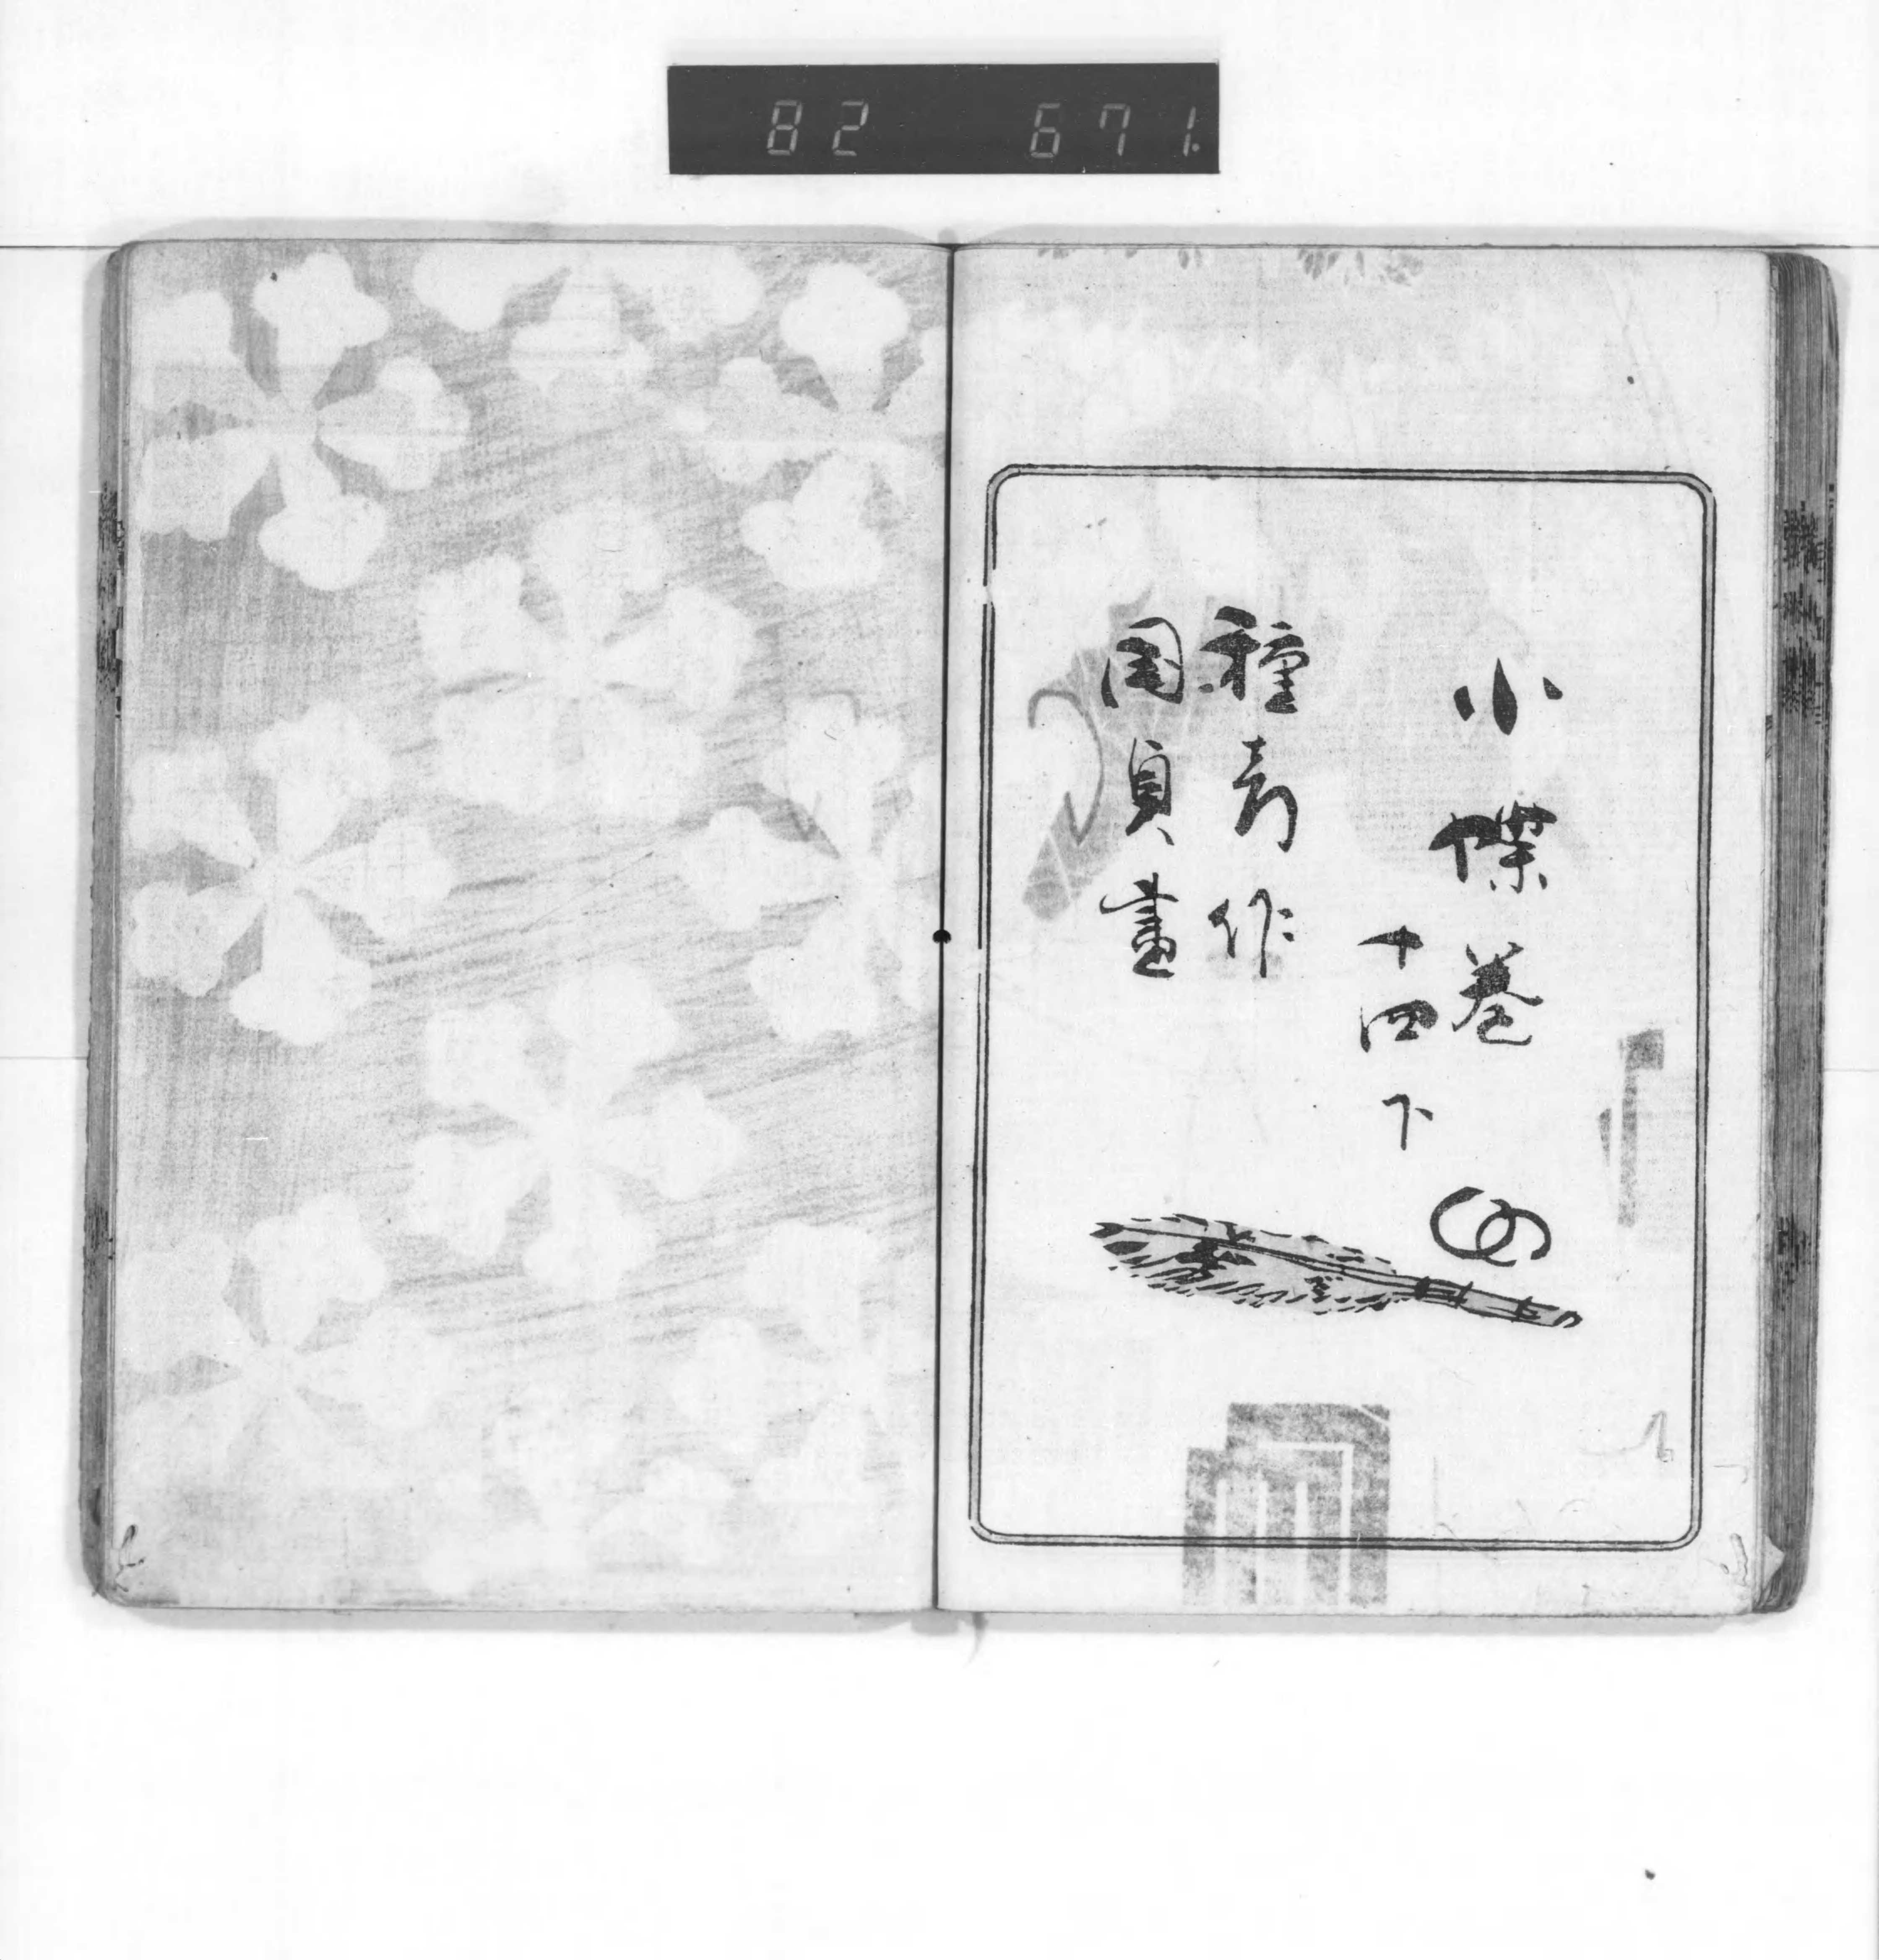 82 671.
小蝶巻
十四下
種彦作
国貞畫